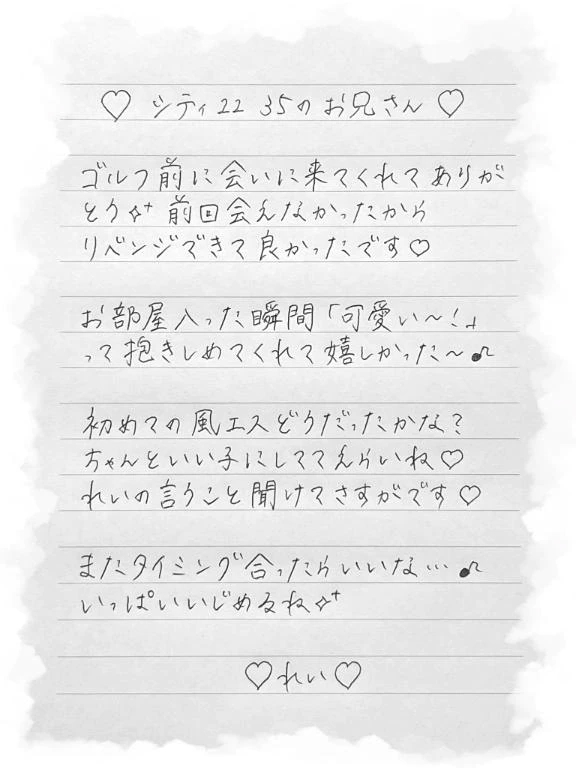 ♡ シティ22 35のお兄さん ♡
ゴルフ前に会いに来てくれてありが
とう✧⁺ 前回会えなかったから
リベンジできて良かったです♡
お部屋入った瞬間「可愛い〜！」
って抱きしめてくれて嬉しかった〜♪
初めての風エスどうだったかな？
ちゃんといい子にしててえらいね♡
れいの言うこと聞けてさすがです♡
またタイミング合ったらいいな…♪
いっぱいいじめるね✧⁺
♡れい♡